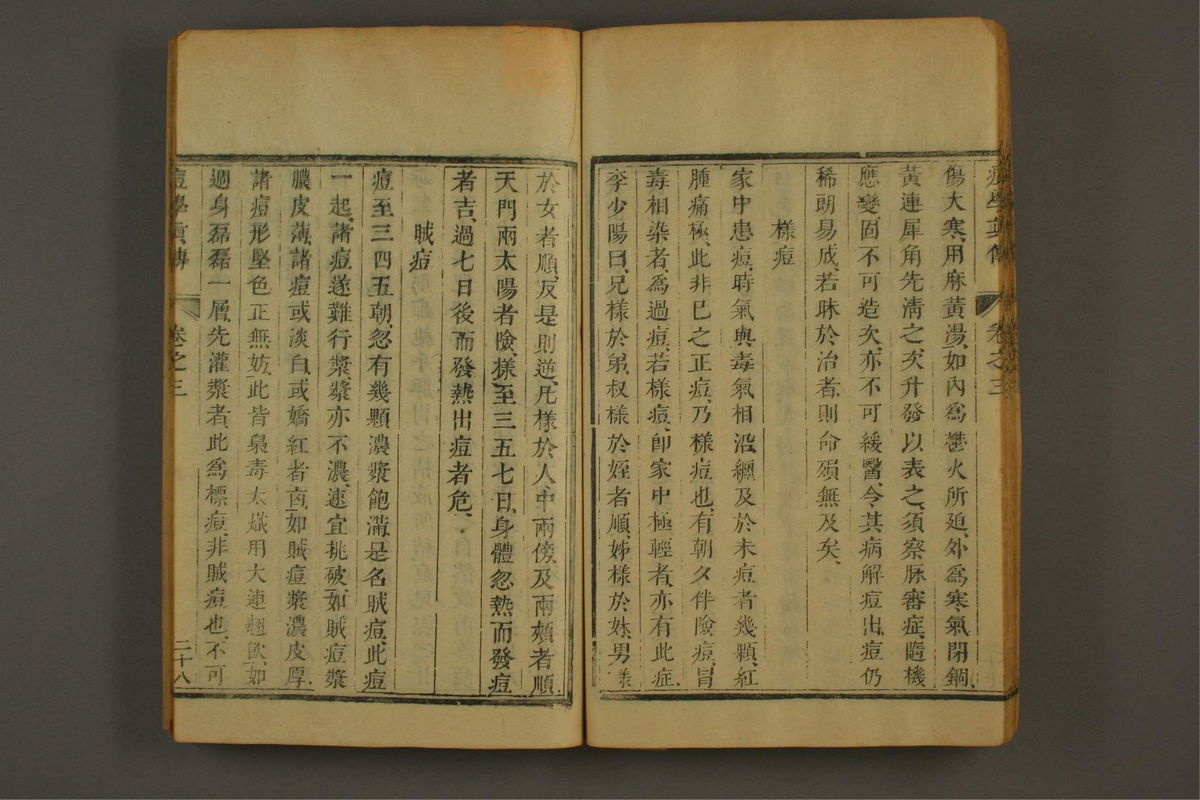 痘學真傳 卷之三
傷大寒、用麻黃湯、如內爲鬱火所廹、外爲寒氣閉錮、
黃連犀角先淸之、次升發以表之、須察脈審症、隨機
應變、固不可造次、亦不可緩醫、令其病解痘出、痘仍
稀朗易成、若昧於治者、則命殞無及矣、
樣痘
家中患痘、時氣與毒氣相沿、纏及於未痘者幾顆、紅
腫痛極、此非已之正痘、乃樣痘也、有朝夕伴險痘、冒
毒相染者、爲過痘、若樣痘、卽家中極輕者、亦有此症
李少陽曰、兄樣於弟、叔樣於姪者順、姊樣於妹、男樣
於女者順、反是則逆、凡樣於人中兩傍、及兩頰者順
天門兩太陽者險、樣至三五七日、身體忽熱而發痘
者吉、過七日後而發熱出痘者危、
賊痘
痘至三四五朝、忽有幾顆濃漿飽滿、是名賊痘、此痘
一起、諸痘遂難行漿、漿亦不濃、速宜挑破、如賊痘漿
膿皮薄、諸痘或淡白、或嬌紅者凶、如賊痘漿濃皮厚、
諸痘形堅色正無妨、此皆梟毒太熾、用大連翹飮、如
週身磊磊一層、先灌漿者、此爲標痘、非賊痘也、不可
痘學真傳 卷之三 二十八